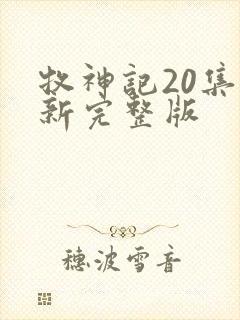 牧神記20集
新完整版
穗波雪音